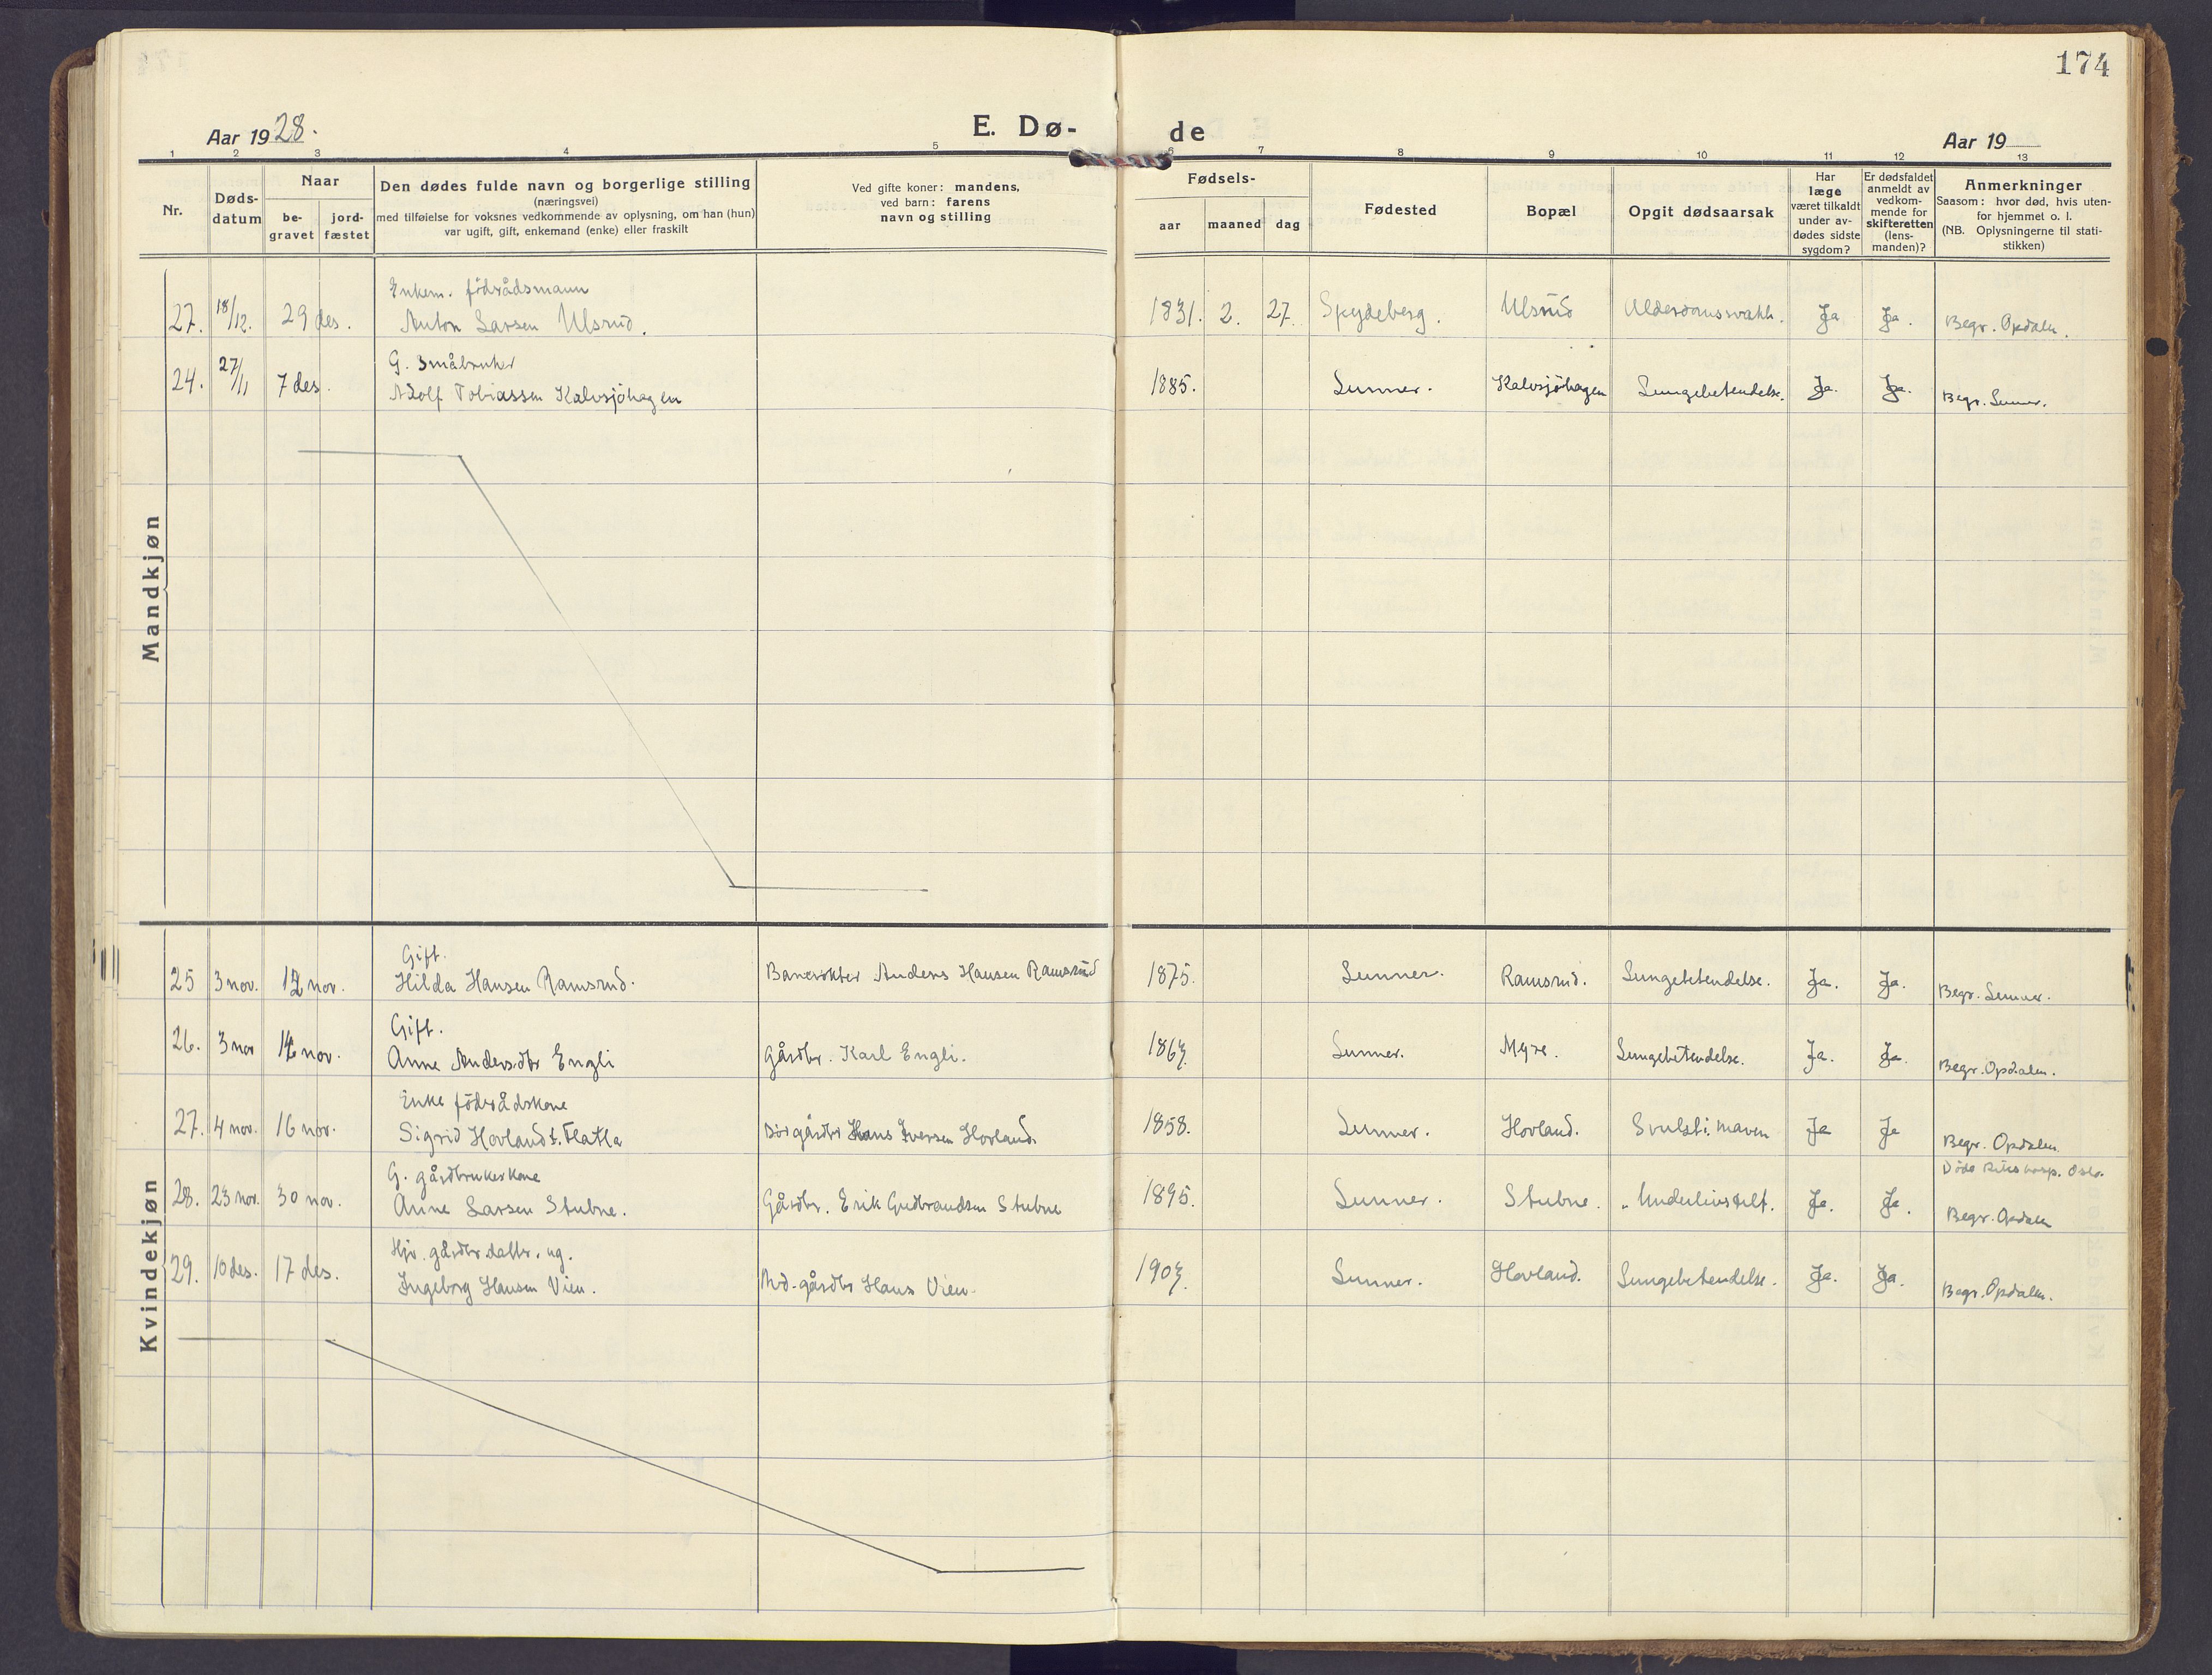 174
Aar 1928.
E. Dø-
de
Aar 19
1 2 3 4 5 6 7 8 9 10 11 12 13
Nr.
Døds-
datum
Naar
be-
gravet
jord-
fæstet
Den dødes fulde navn og borgerlige stilling
(næringsvei)
med tilføielse for voksnes vedkommende av oplysning, om han (hun)
var ugift, gift, enkemand (enke) eller fraskilt
Ved gifte koner: mandens,
ved barn: farens
navn og stilling
Fødsels-
aar
maaned
dag
Fødested
Bopæl
Opgit dødsaarsak
Har
læge
været tilkaldt
under av-
dødes sidste
sygdom?
Er dødsfaldet
anmeldt av
vedkom-
mende for
skifteretten
(lens-
manden)?
Anmerkninger
Saasom: hvor død, hvis uten-
for hjemmet o. l.
(NB. Oplysningerne til stati-
stikken)
Mandkjøn
Enkem. födrådsmann
27. 18/12. 29 des. Anton Larsen Ulsrud. 1831. 2. 27. Spydeberg. Ulsrud Alderdomssvakh. Ja Ja. Begr. Opdalen.
G. Småbruker
24. 27/11 7 des. Adolf Tobiassen Kalvsjöhagen 1885. Lunner. Kalvsjöhagen Lungebetendelse. Ja. Ja. Begr. Lunner.
Kvindekjøn
Gift.
25 3 nov. 12 nov. Hilda Hansen Ramsrud. Banevokter Anders Hansen Ramsrud 1875. Lunner. Ramsrud. Lungebetendelse. Ja. Ja. Begr. Lunner.
Gift.
26. 3 nov nov. Anne Andersdtr Engli Gårdbr. Karl Engli. 1867. Lunner. Myre. Lungebetendelse. Ja. Ja. Begr. Opdalen.
Enke födrådskone
27. 4 nov. 16 nov. Sigrid Hovland f. Flatla gårdbr Hans Iversen Hovland. 1858. Lunner. Hovland. Svulst i maven Ja Ja Begr. Opdalen
G. gårdbrukerkone
Döde Rikshosp. Oslo.
28. 23 nov. 30 nov. Anne Larsen Stubne. Gårdbr. Erik Gudbrandsen Stubne 1895. Lunner. Stubne. Ja. Ja. Begr. Opdalen
Hjv. gårdbr.dattr. ug.
29. 10 des. 17 des. Ingeborg Hansen Vien. gårdbr Hans Vien. 1907. Lunner. Hovland. Lungebetendelse. Ja. Ja. Begr. Opdalen.